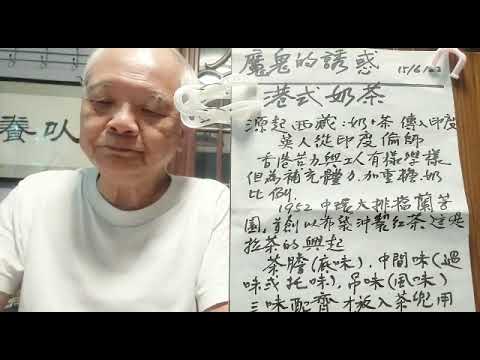 魔鬼的誘惑
15/6/22
港式奶茶
源起西藏:奶+茶 傳入印度
英人從印度偷師
香港苦力與工人有樣學樣
但為補充體力.加重糖.奶
比例.
1952 中環大排檔蘭芳
園,首創以布袋沖製紅茶 這是
拉茶的興起
茶膽(底味).中間味(過
味或托味),吊味(風味)
三味配齊才放入茶兜用